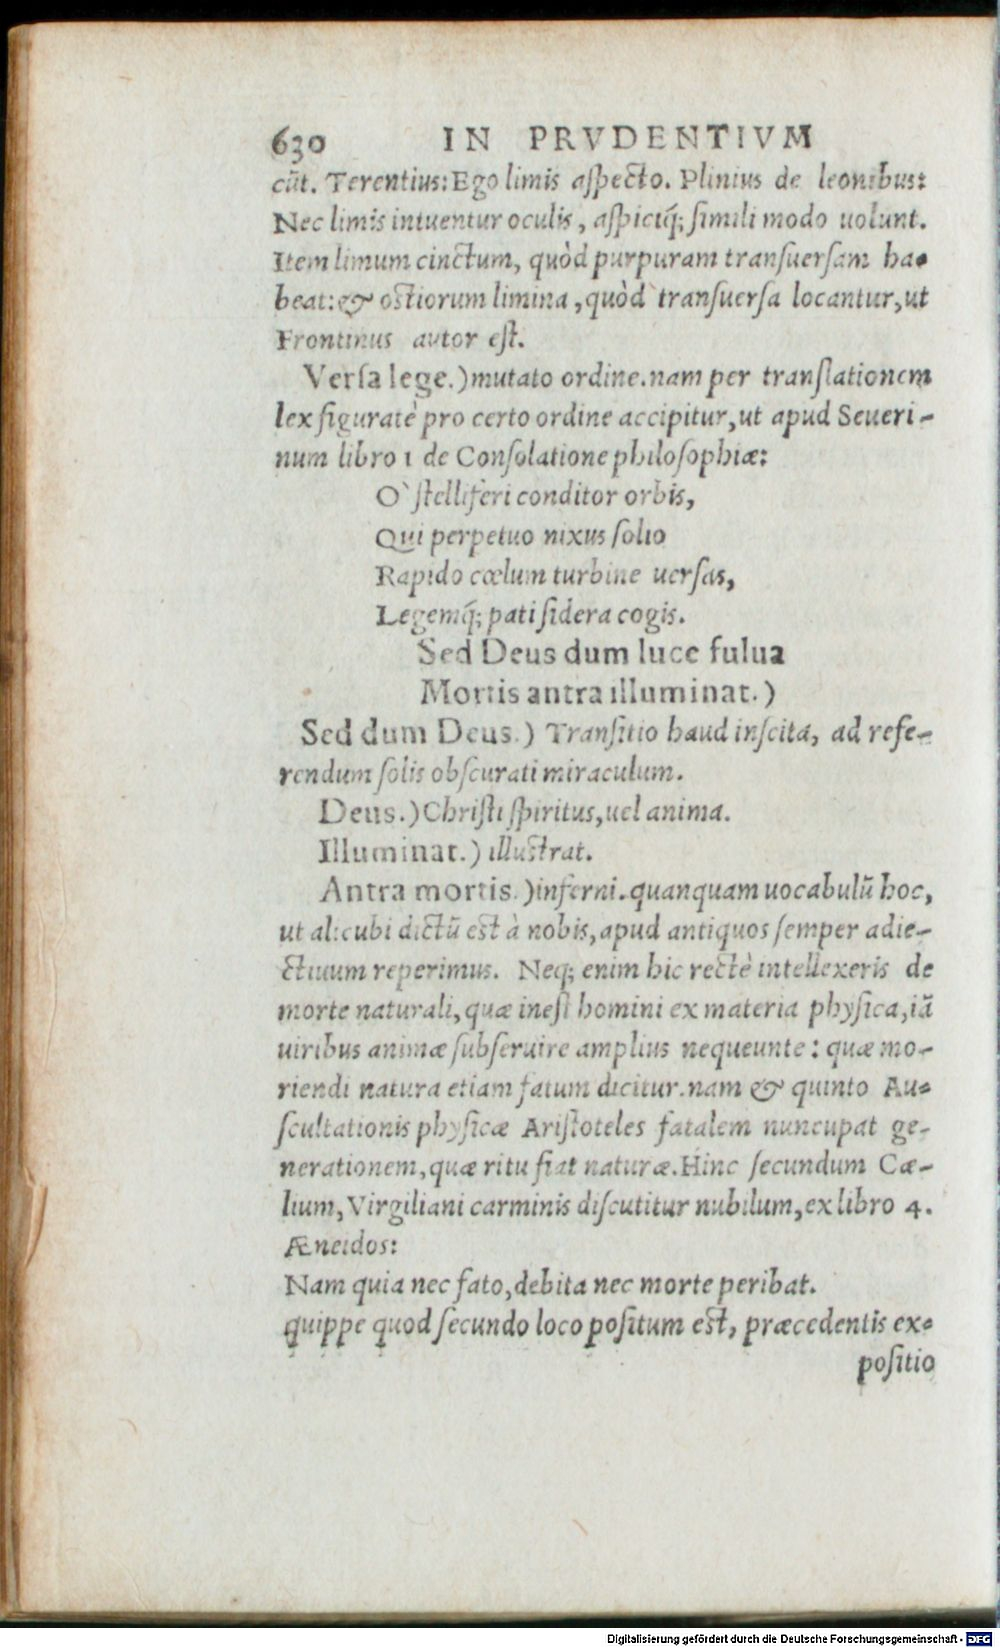 630 IN PRVDENTIVM
cũt. Terentius: Ego limis aſpecto. Plinius de leonibus:
Nec limis intuentur oculis, aſpiciq́; ſimili modo uolunt.
Item limum cinctum, quòd purpuram tranſuerſam ha-
beat: & oſtiorum limina, quòd tranſuerſa locantur, ut
Frontinus autor eſt.
Verſa lege.) mutato ordine. nam per tranſlationem
lex figuratè pro certo ordine accipitur, ut apud Seueri-
num libro 1 de Conſolatione philoſophiæ:
O` ſtelliferi conditor orbis,
Qui perpetuo nixus ſolio
Rapido cœlum turbine uerſas,
Legemq́; pati ſidera cogis.
Sed Deus dum luce fulua
Mortis antra illuminat.)
Sed dum Deus.) Tranſitio haud inſcita, ad refe-
rendum ſolis obſcurati miraculum.
Deus.) Chriſti ſpiritus, uel anima.
Illuminat.) illuſtrat.
Antra mortis.) inferni. quanquam uocabulũ hoc,
ut alicubi dictũ eſt à nobis, apud antiquos ſemper adie-
ctiuum reperimus. Neq; enim hic rectè intellexeris de
morte naturali, quæ ineſt homini ex materia phyſica, iã
uiribus animæ ſubſeruire amplius nequeunte: quæ mo-
riendi natura etiam fatum dicitur. nam & quinto Au-
ſcultationis phyſicæ Ariſtoteles fatalem nuncupat ge-
nerationem, quæ ritu fiat naturæ. Hinc ſecundum Cæ-
lium, Virgiliani carminis diſcutitur nubilum, ex libro 4.
Æneidos:
Nam quia nec fato, debita nec morte peribat.
quippe quod ſecundo loco poſitum eſt, præcedentis ex-
poſitio
Digitalisierung gefördert durch die Deutsche Forschungsgemeinschaft - DFG